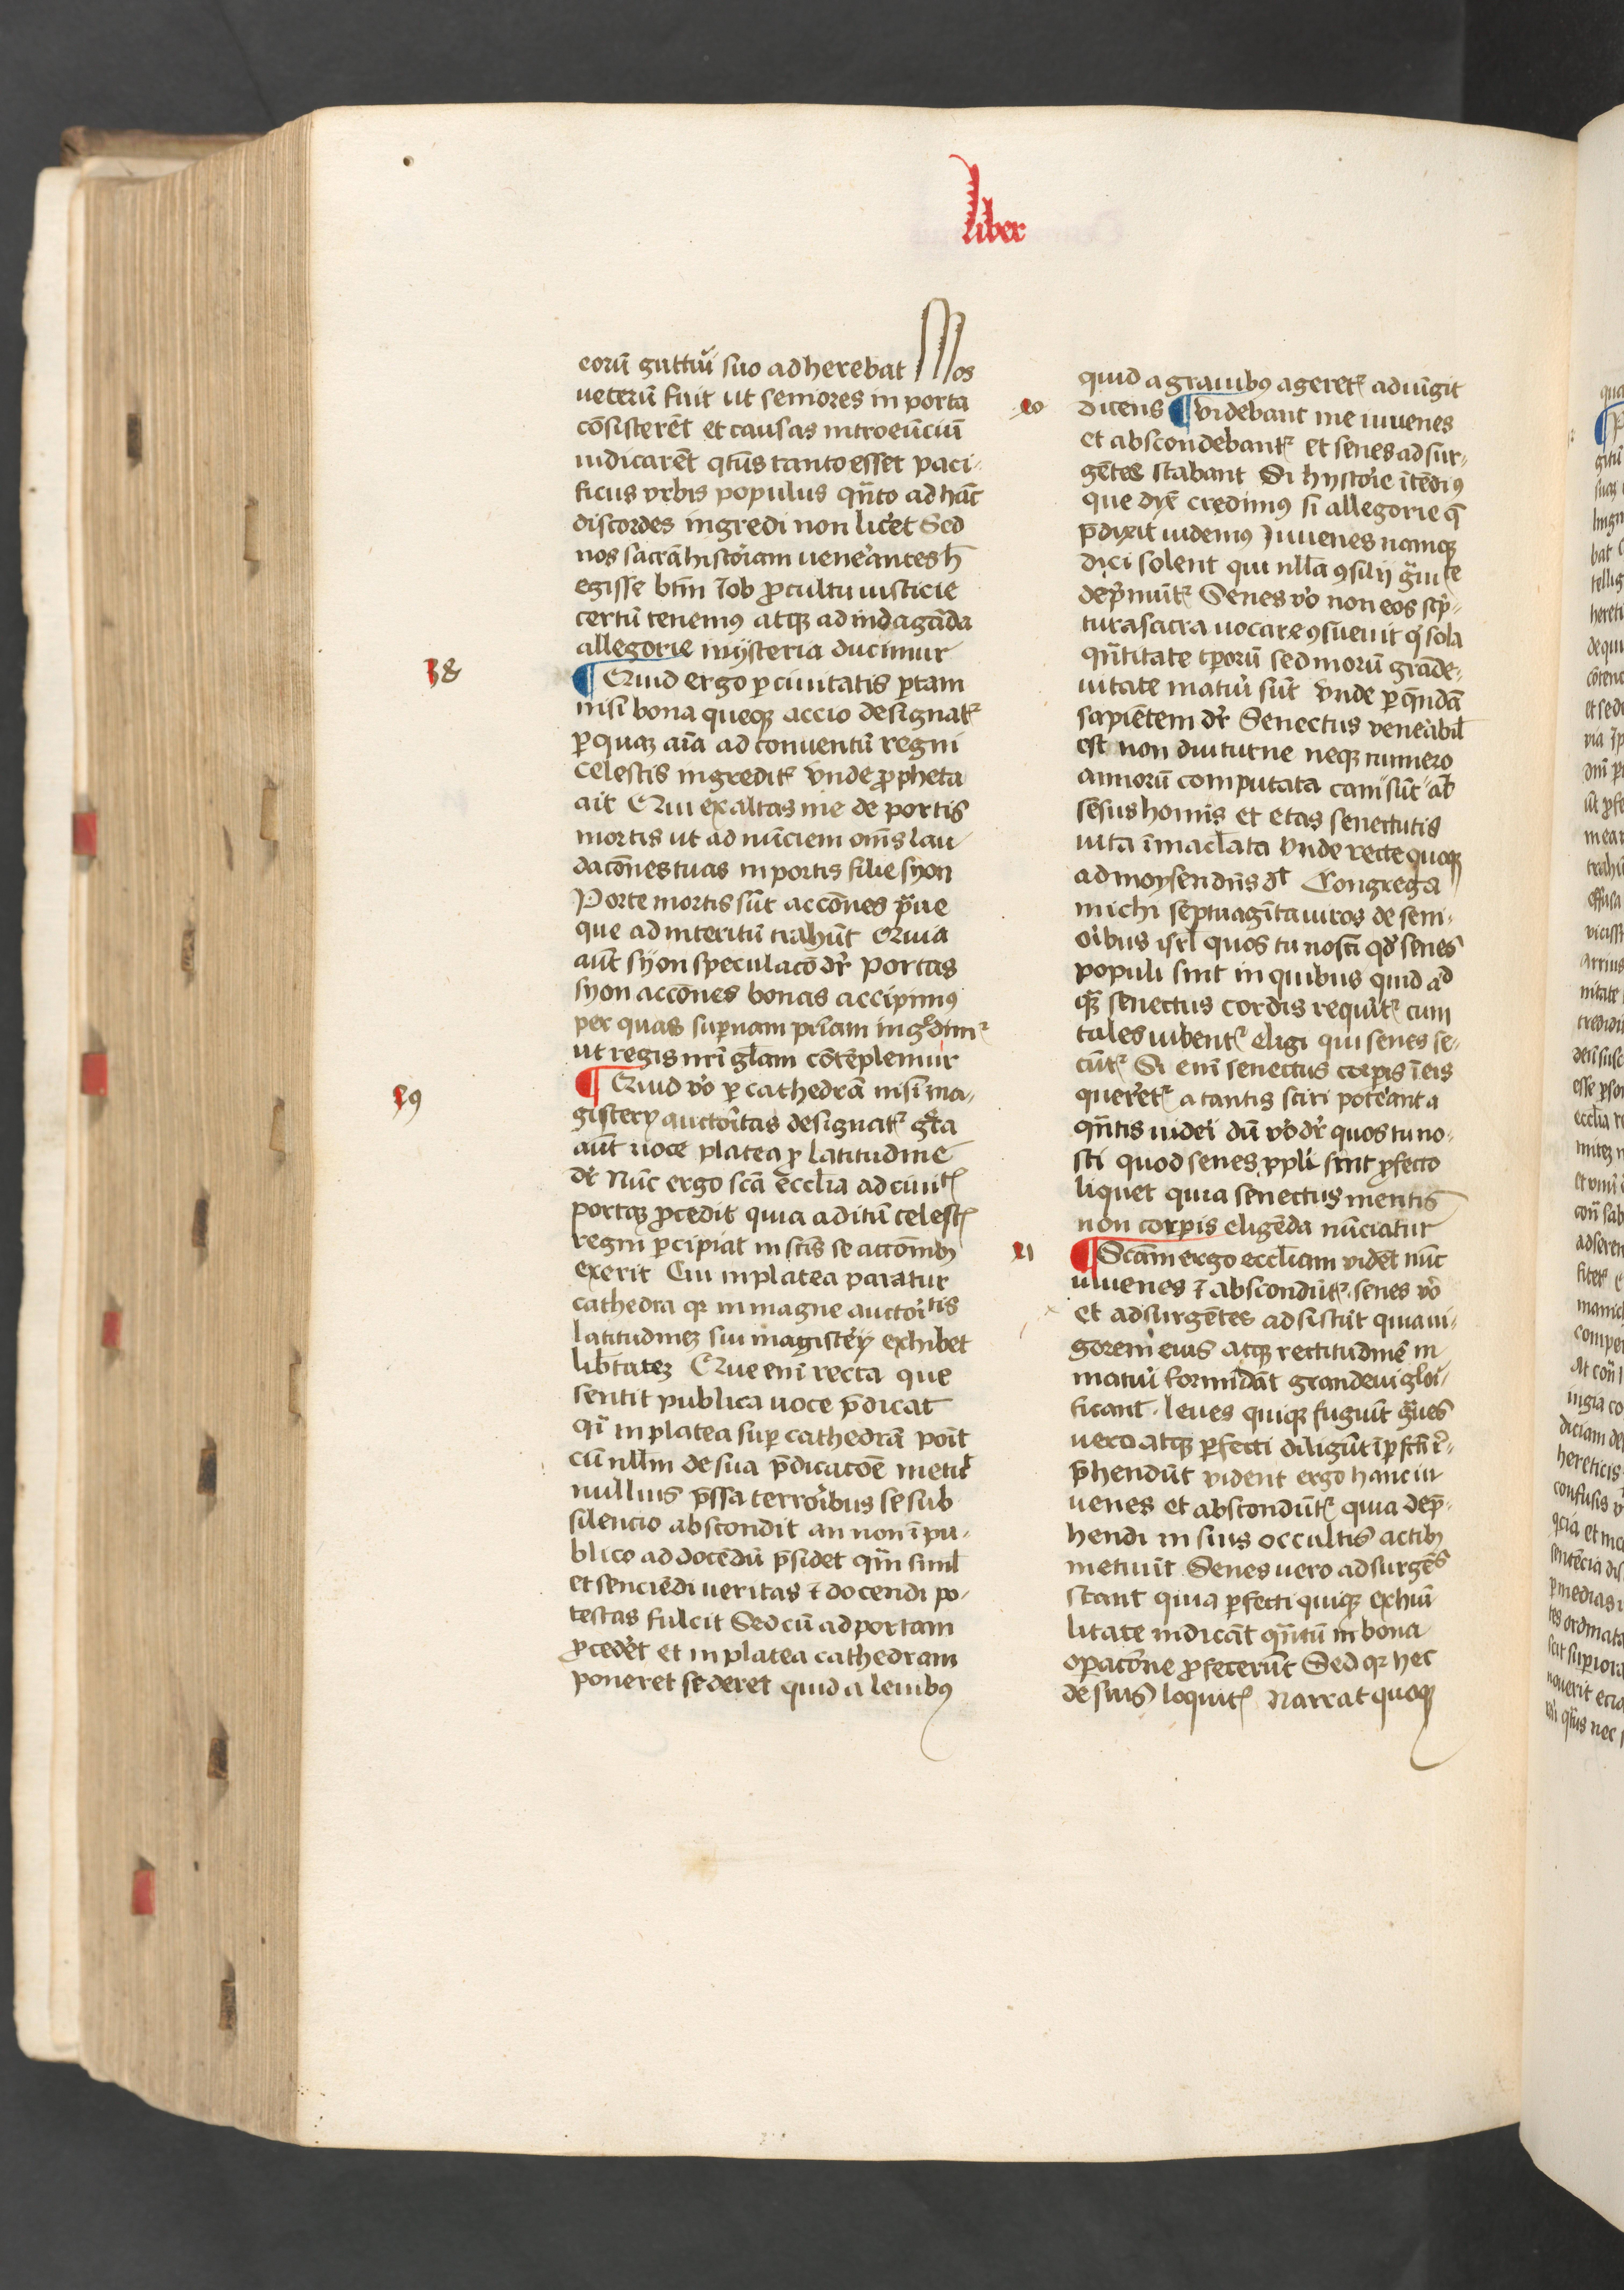 liber
eorū guttur̄i suo adherebat Mos
ueterū fuit ut seniores in porta
cōsisterēt et causas introeūciū
iudicarēt qtūs tanto esset paci-
ficus vrbis populus qn̄to ad hāc
discordes ingredi non licet Sed
nos sacrā historiam venerantes h̄
egisse btm̄ iob ꝓ cultu iusticie
certū tenemꝰ atqꝫ ad indagāda
allegorie mysteria ducimur
38
¶ Quid ergo ꝑ ciuitatis ꝑtam
nisi bona queqꝫ accio designatᷣ
ꝑ quaꝫ aīa ad conuentū regni
celestis ingreditᷣ vnde ꝓpheta
ait Qui exaltas me de portis
mortis ut ad nūciem om̄s lau
dacōnes tuas in portis filie syon
Porte mortis sūt accōnes p̄ue
que ad interitū trahūt Quia
aūt syon speculacō dr̄ portas
syon accōnes bonas accipimꝰ
per quas suꝑnam pr̄iam ingᷣdimᷣ
ut regis nr̄i gl̄am cōtēplemur
¶ Quid v̊o ꝑ cathedrā nisi ma-
39
gistery auctoritas designatᷣ gr̄a
aūt uoce platea ꝓ latitudine
dr̄ Nūc ergo scā eccl̄ia ad ciuitᷣ
portaꝫ ꝓcedit quia aditū celestᷣ
regni ꝑcipiat in scīs se accōnibꝫ
exerit Cui in platea paratur
cathedra qꝛ in magne auctoritis
latitudineꝫ sui magistery exhibet
lib̄tateꝫ Que eni recta que
sentit publica uoce p̄dicat
qi in platea suꝑ cathedrā poīt
cū nllm̄ de sua p̄dicacōe metit
nullius p̄ssa terroribus se sub
silencio abscondit an non ī pu-
blico ad docēdū p̄sidet qm̄ siml̄
et senciēdi ueritas ⁊ docendi po-
testas fulcit Sed cū ad portam
ꝓcederet et in platea cathedram
poneret sederet quid a leuibꝰ
quid a grauibꝰ ageretᷣ adiūgit
40
dicens ¶ videbant me iuuenes
et abscondebantᷣ et senes adsur-
gētes stabant Si hystorie ītēdiꝰ
que dixͭ credimꝰ si allegorie q̄
p̄dixit uidemꝰ Juuenes namqꝫ
dici solent qui nll̄a ꝯsilij gr̄uite
dep̄muntᷣ Senes v̊o non eos scp̄-
tura sacra uocare ꝯsueuit qͥ sola
qn̄titate tꝑorū sed morū grāde-
uitate maturi sūt vnde ꝑ qn̄dā
sapiētem dr̄ Senectus venerabil̄
est non diuturne neqꝫ numero
annorū computata cani sūt aūt
sēsus homis et etas senectutis
uita īmacl̄ata vnde recte quoqꝫ
ad moysen dn̄s dt̄ Congrega
michi septuagīta uiros de seni-
oribus isrl̄ quos tu nosti qd̄ senes
populi sint in quibus quid ad
qꝫ senectus cordis requiritᷣ cum
tales iubentᷣ eligi qui senes se-
cūtᷣ Si eni senectus corꝑis ī eis
queretᷣ a tantis sciri poterant a
qn̄tis uideri dū v̊o dr̄ quos tu no-
sti quod senes ppl̄i sint ꝓfecto
liquet quia senectus mentis
non corꝑis eligēda nūciatur
41
¶ Scām ergo eccl̄iam vidēt nūc
iuuenes ⁊ abscondūtᷣ. senes v̊o
et adsurgētes adsistūt quia ui-
gorem eius atqꝫ rectitudinē in
maturi formidāt grandeui glori-
ficant. leues quiqꝫ fugiūt gr̄ues
vero atqꝫ ꝑfecti diligūt īꝑfcti r̄-
p̄hendūt vident ergo hanc iu
uenes et abscondūtᷣ quia dep̄-
hendi in suis occultis actibꝫ
metuūt Senes uero adsurgēs
stant quia ꝑfecti quiqꝫ ex hūi
litate indicāt qn̄tū in bona
oꝑacōne ꝓfecerūt Sed qꝛ hec
de suis loquitᷣ Narrat quoqꝫ